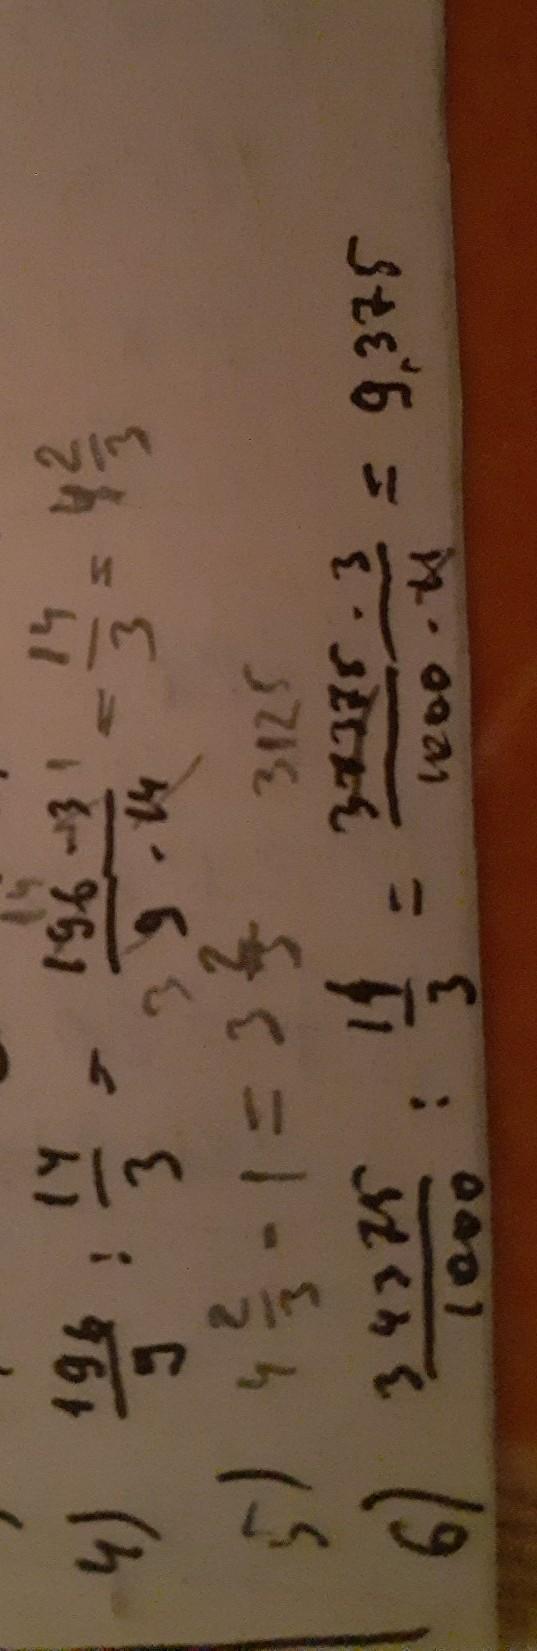 4) 196/9 : 14/3 = 196 · 3/9 · 14 = 14/3 = 4 2/3
5) 4 2/3 - 1 = 3 2/3
3125
6) 34375/1000 : 11/3 = 34375 · 3/1000 · 11 = 9,375